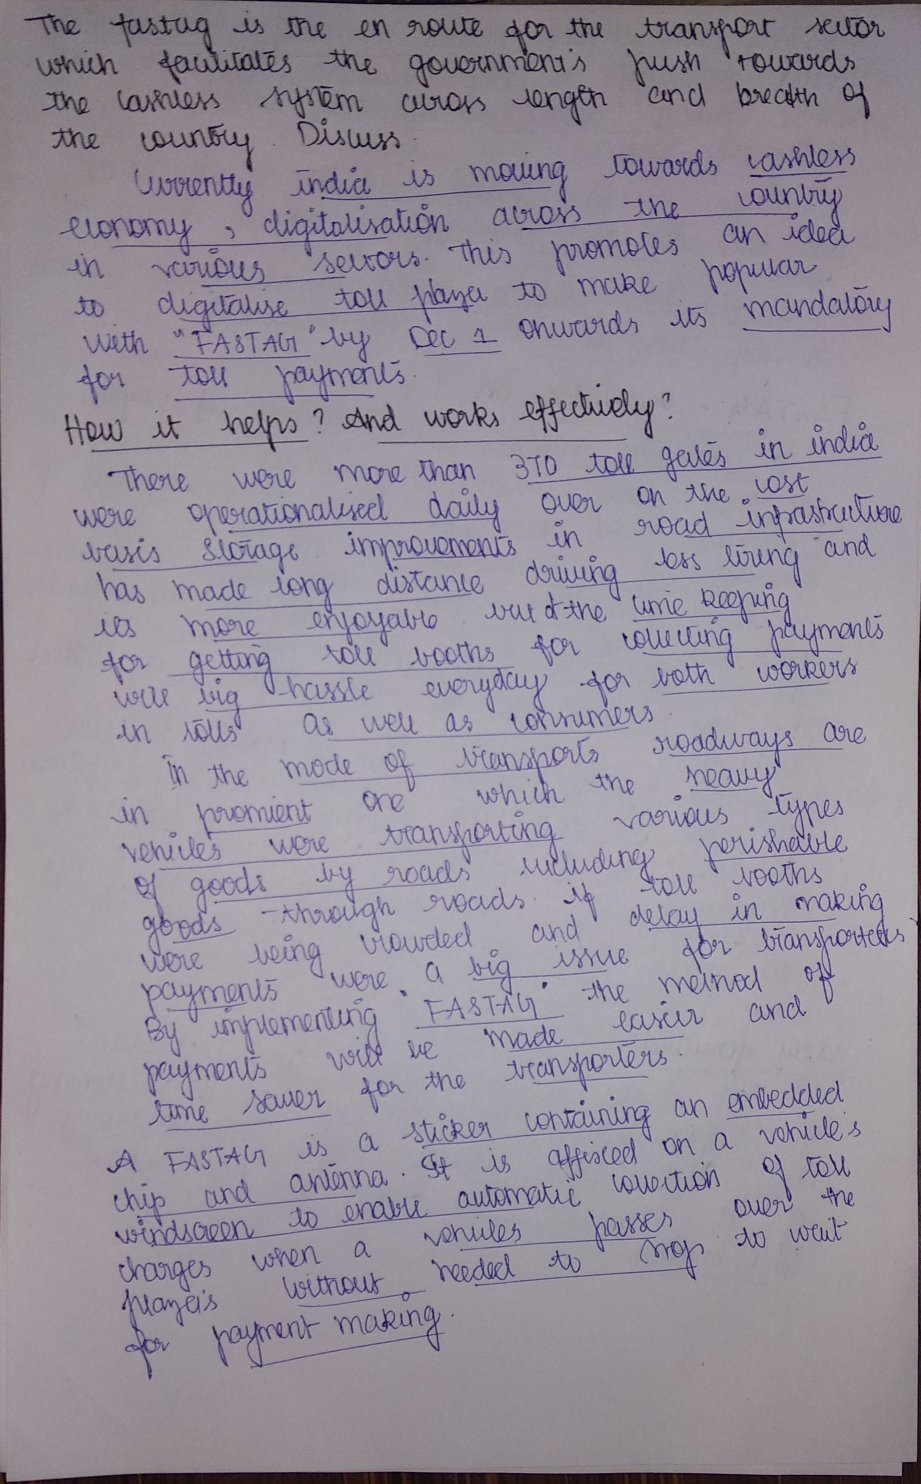 The fastag is the en route for the transport sector
which facilitates the government's push towards
the cashless system across length and breadth of
the country. Discuss.
Currently india is moving towards cashless
economy, digitalisation across the country
in various sectors. This promotes an idea
to digitalise toll plaza to make popular
with "FASTAG" by Dec 1 onwards its mandatory
for toll payments.
How it helps? And works effectively?
There were more than 370 toll gates in india
were operationalised daily over on the cost
basis storage improvements in road infrastructure
has made long distance driving less tiring and
its more enjoyable but the time keeping
for getting toll booths for collecting payments
will big hassle everyday for both workers
in tolls as well as consumers.
In the mode of transports roadways are
in promient one which the heavy
vehicles were transporting various types
of goods by roads including perishable
goods through roads. if toll booths
were being crowded and delay in making
payments were a big issue for transporters.
By implementing "FASTAG" the method of
payments will be made easier and
time saver for the transporters.
A FASTAG is a sticker containing an embedded
chip and antenna. It is affixed on a vehicle's
windscreen to enable automatic collection of toll
charges when a vehicles passes over the
plaza's without needed to stop to wait
for payment making.